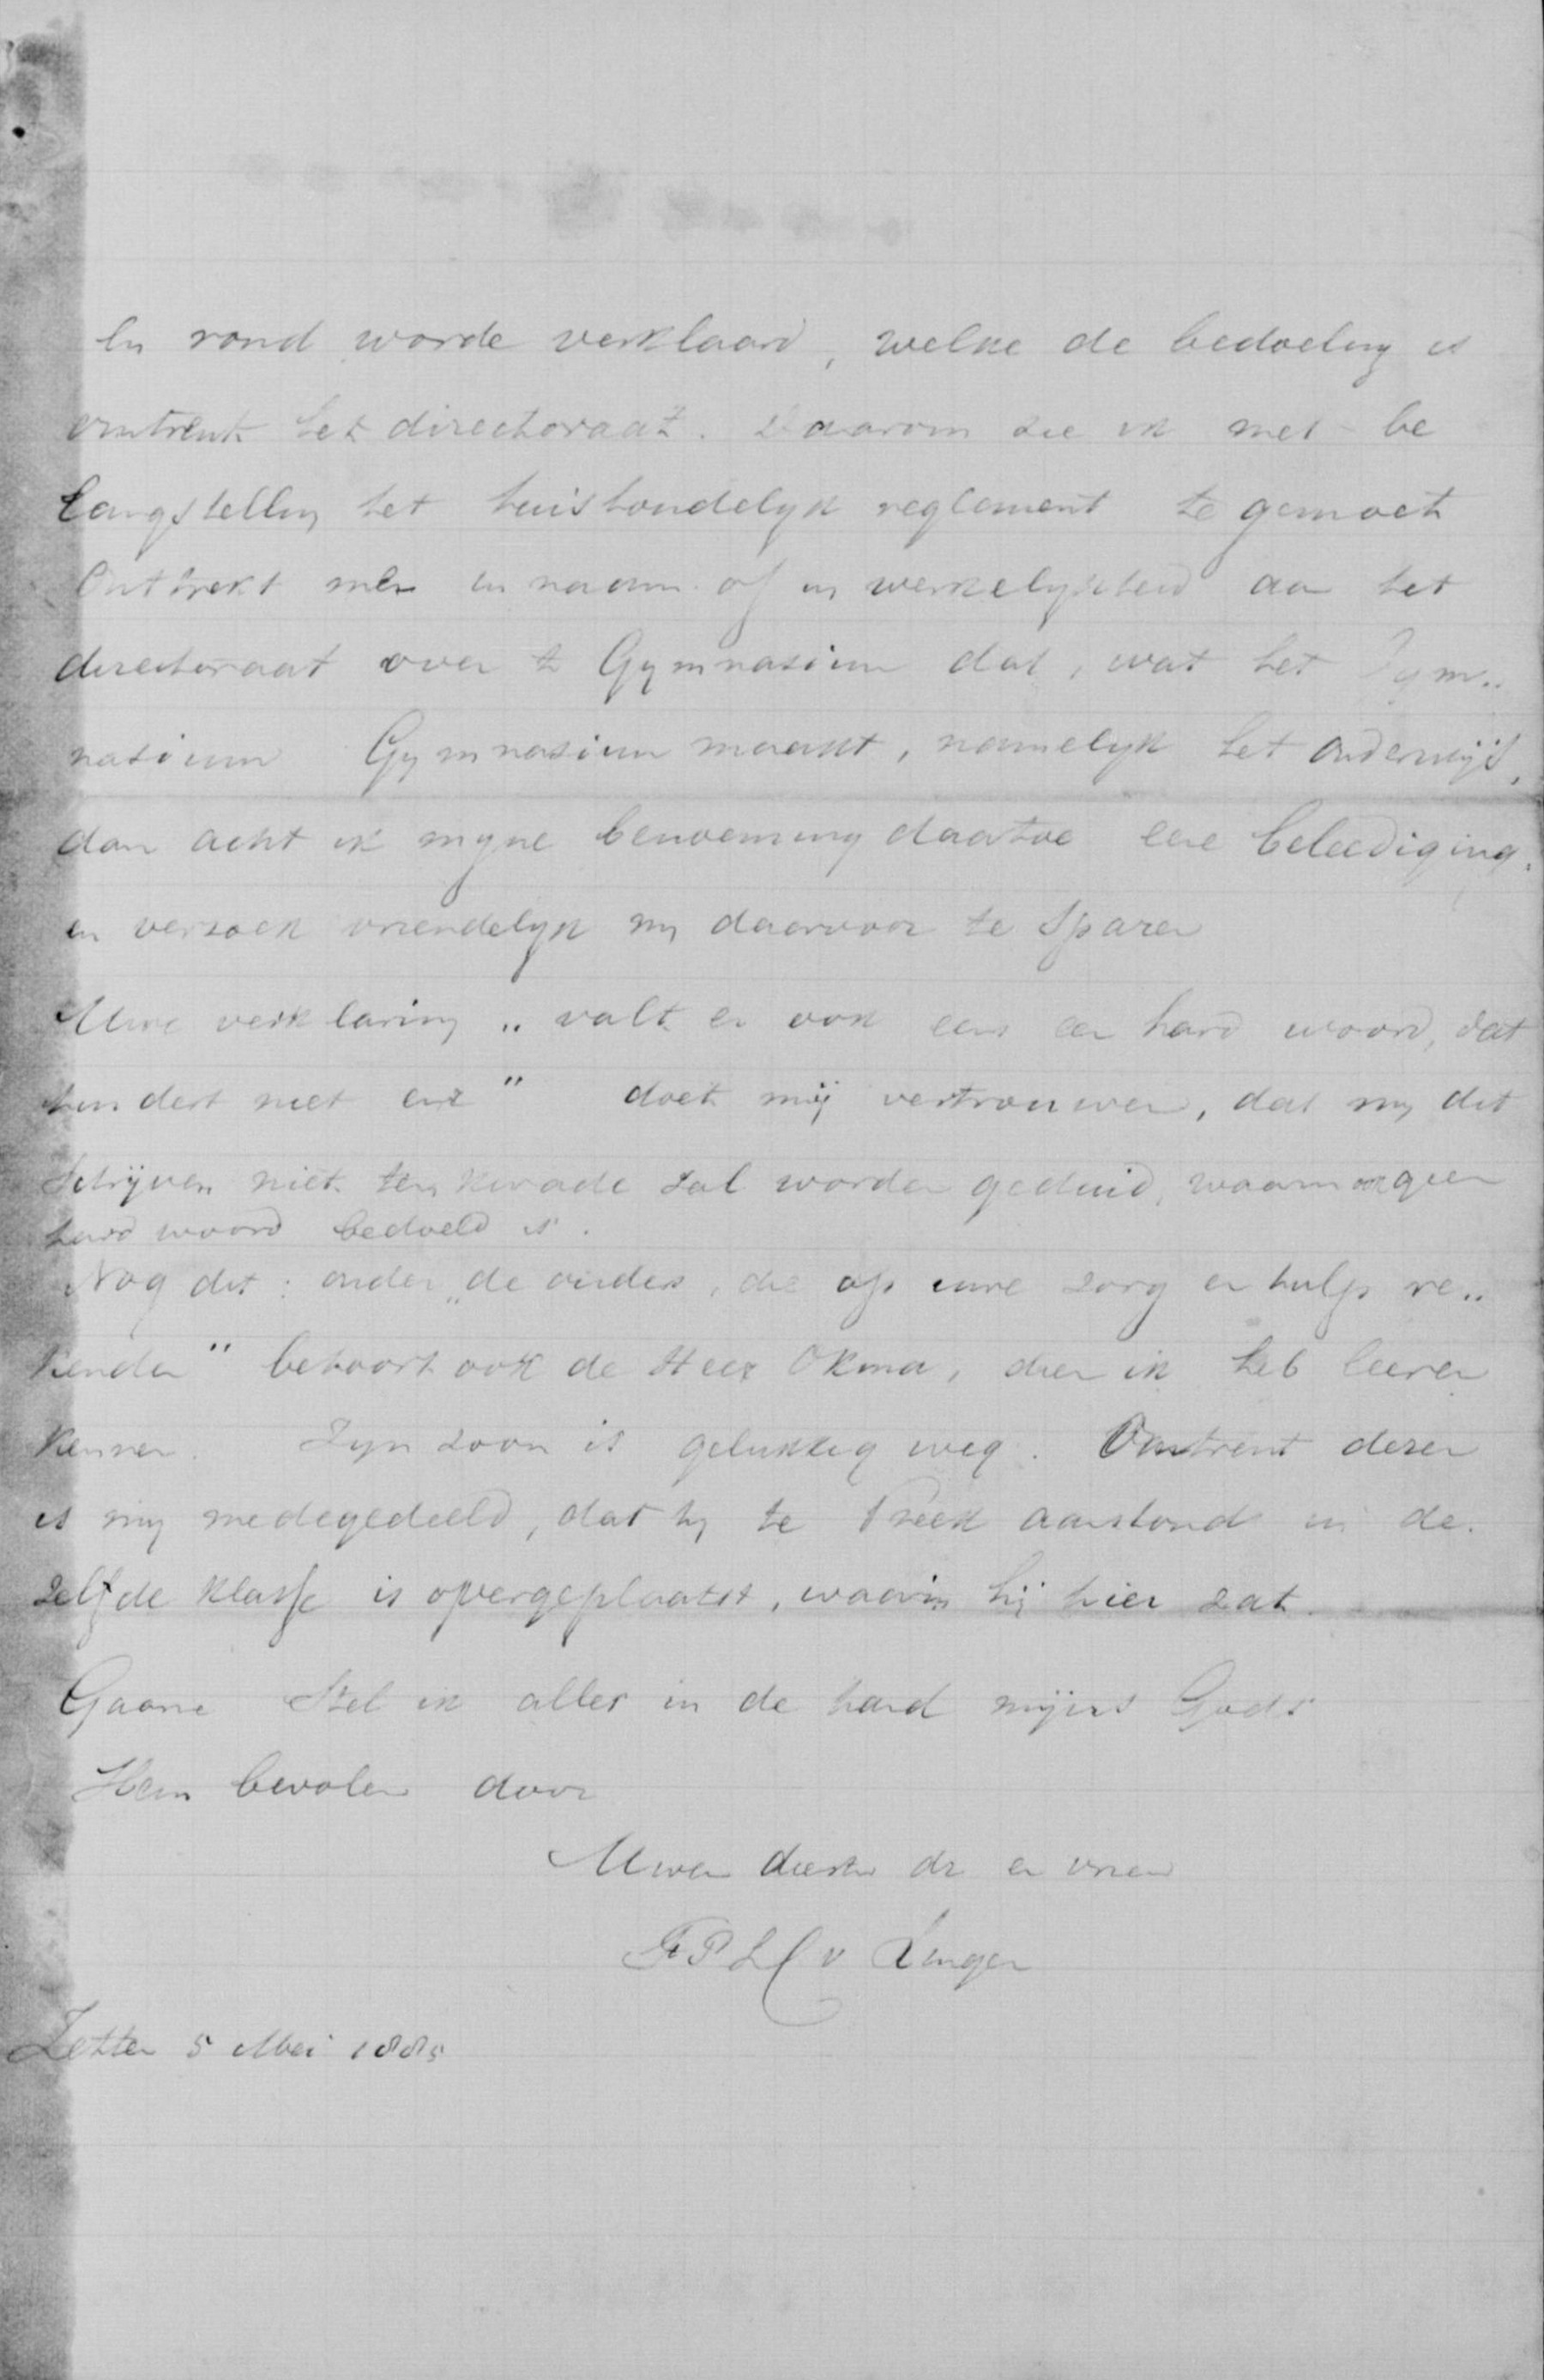 en rond worde verklaard, welke de bedoeling is
omtrent het directoraat. Daarom zie ik met be
langstelling het huishoudelyk reglement te gemoet
Onttrekt men in naam of in werkelykheid aan het
directoraat over 't Gymnasium dat, wat het Gym„
nasium Gymnasium maakt, namelyk het onderwijs,
dan acht ik myne benoeming daartoe eene beleediging,
en verzoek vriendelyk my daarvoor te sparen
Uwe verklaring „valt er ook eens een hard woord, dat
hindert niet enz" doet mij vertrouwen, dat my dit
schrijven niet ten kwade zal worden geduid, waarin ook geen
hard woord bedoeld is.
Nog dit: onder „de ouders, die op uwe zorg en hulp re„
kenden" behoort ook de Heer Okma, dien ik heb leeren
kennen. Zyn zoon is gelukkig weg. Omtrent dezen
is my medegedeeld, dat hy te Sneek aanstonds in de
zelfde klasse is overgeplaatst, waarin hij hier zat.
Gaarne stel ik alles in de hand mijns Gods
Hem bevolen door
Uwen dr en vriend
FPLC v Lingen
Zetten 5 Mei 1885